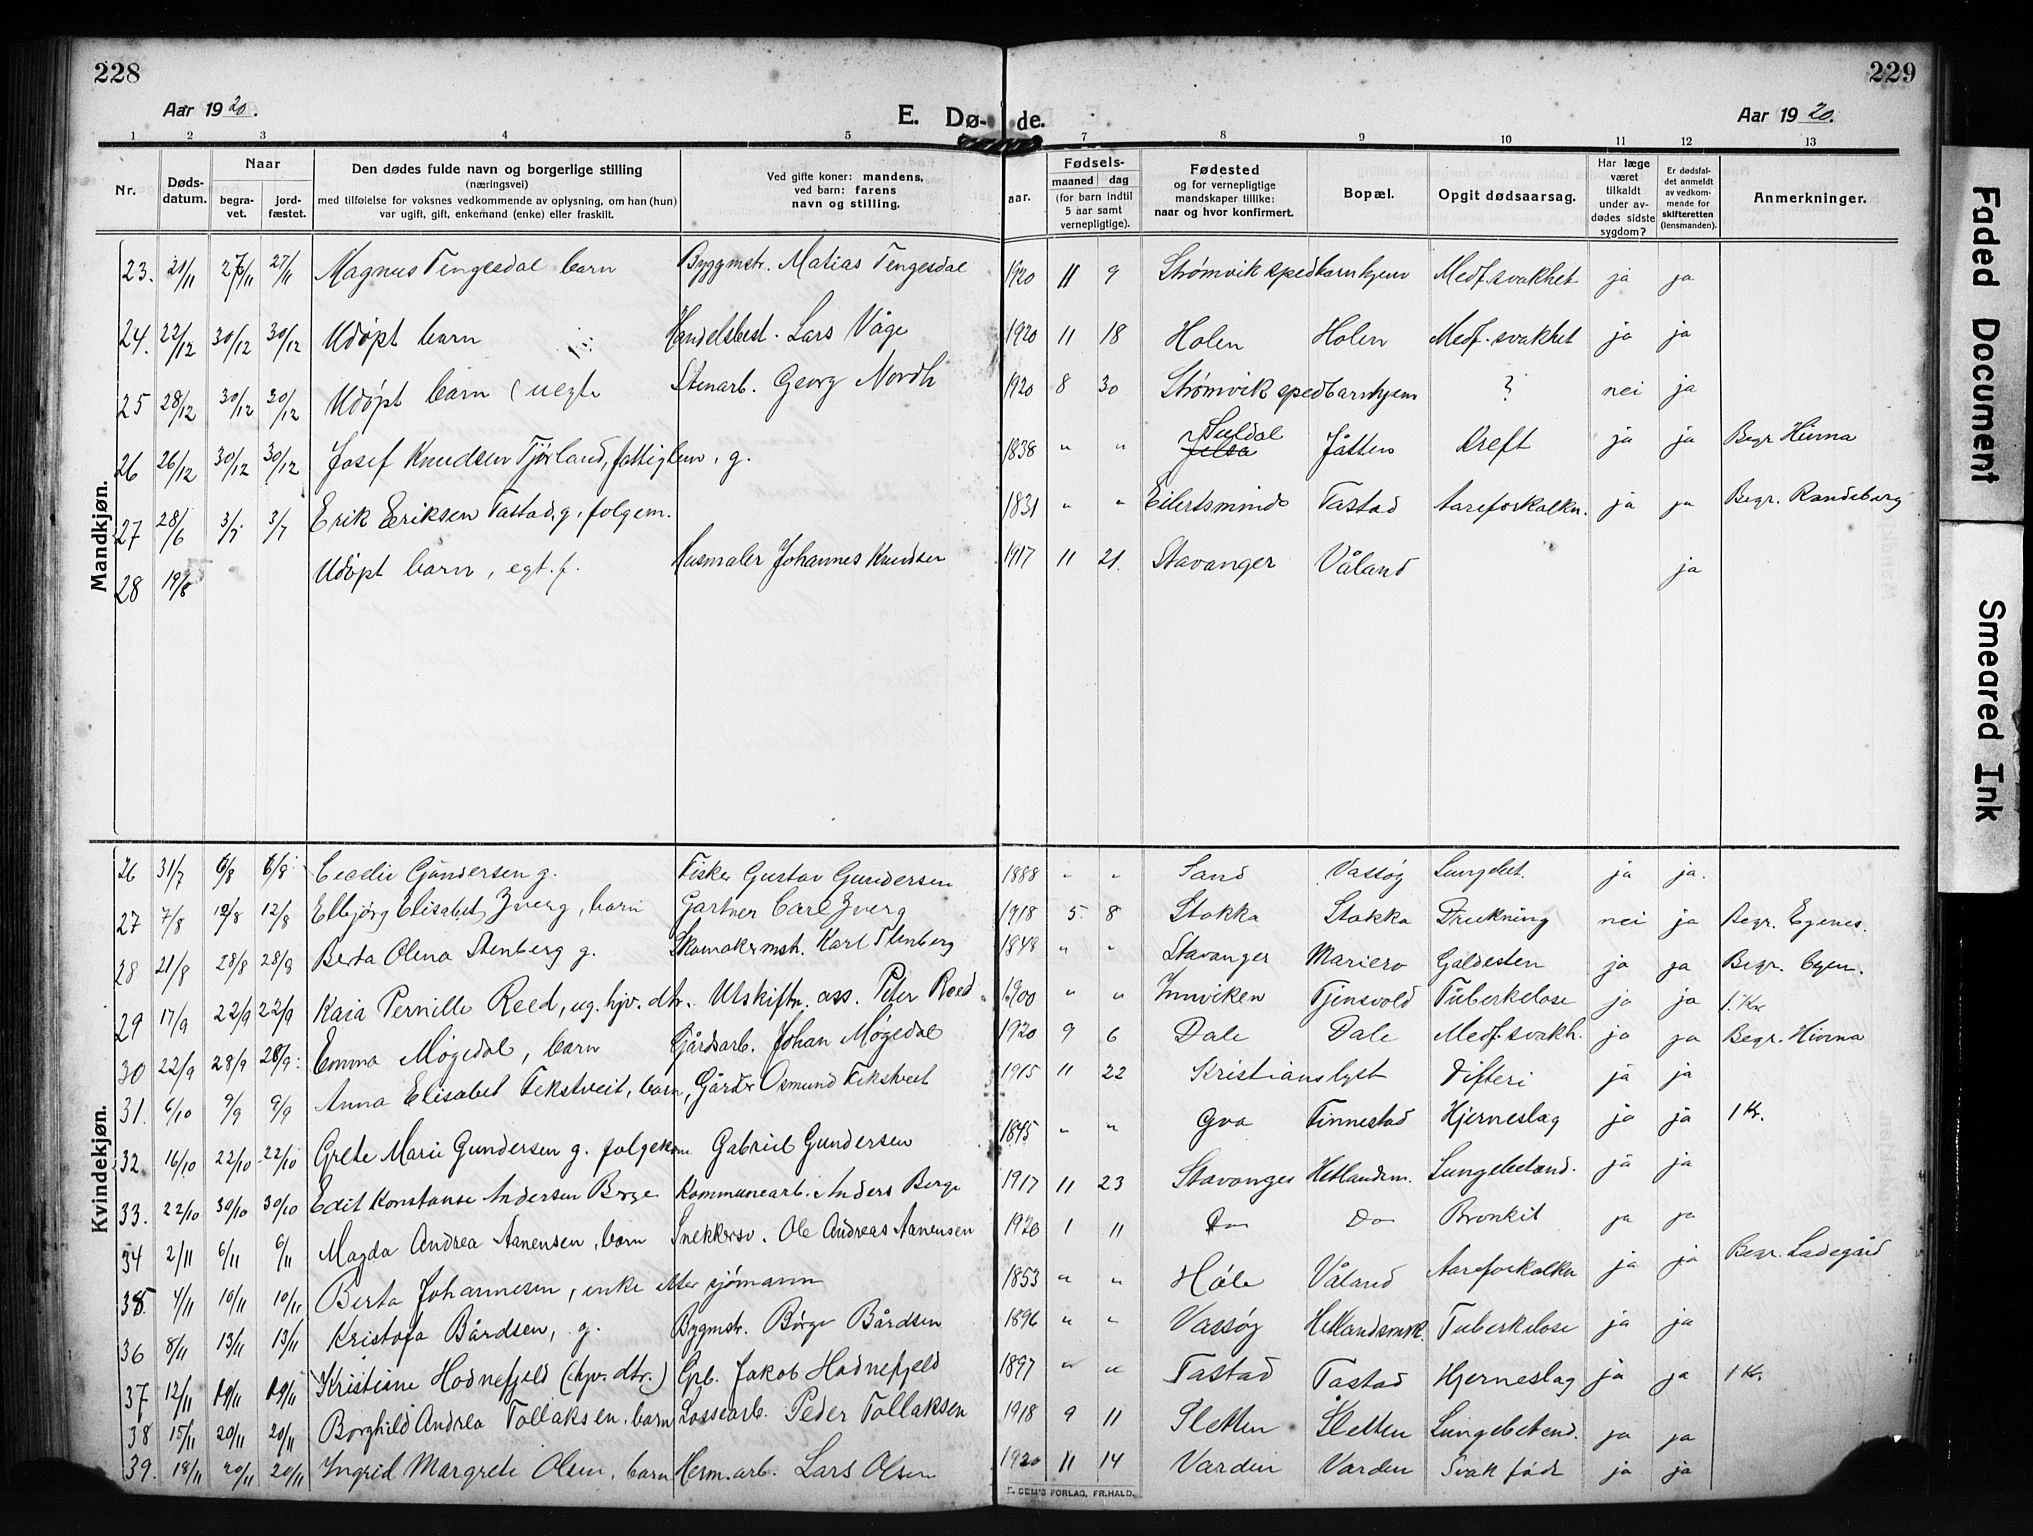 228
229
Aar 1920.
E. Dø- de.
Aar 1920.
1 2 3 4 5 7 8 9 10 11 12 13
Nr.
Døds-
datum.
Naar
begra-
vet.
jord-
fæstet.
Den dødes fulde navn og borgerlige stilling
(næringsvei)
med tilføielse for voksnes vedkommende av oplysning, om han (hun)
var ugift, gift, enkemand (enke) eller fraskilt.
Ved gifte koner: mandens,
ved barn: farens
navn og stilling.
Fødsels-
aar.
maaned dag
(for barn indtil
5 aar samt
vernepligtige).
Fødested
og for vernepligtige
mandskaper tillike:
naar og hvor konfirmert.
Bopæl.
Opgit dødsaarsag.
Har læge
været
tilkaldt
under av-
dødes sidste
sygdom?
Er dødsfal-
det anmeldt
av vedkom-
mende for
skifteretten
(lensmanden).
Anmerkninger.
Mandkjøn.
23. 21/11 27/11 27/11 Magnus Tengesdal barn Byggmstr. Matias Tengesdal 1920 11 9 Strømvik spedbarnhjem Medf. svakhet ja ja
24. 22/12 30/12 30/12 Udøpt barn Handelsbest. Lars Våge 1920 11 18 Holen Holen Medf. svakhet ja ja
25 28/12 30/12 30/12 Udøpt barn (uegte Stenarb. Georg Nordh 1920 8 30 Strømvik spedbarnhjem ? nei ja
26 26/12 30/12 30/12 Josef Knudsen Tjørland, fattiglem, g. 1838 " " Jelsa Suldal Jåtten Kreft ja ja Begr Hinna
27 28/6 3/7 3/7 Erik Eriksen Tastad, g. folgem. 1831 " " Eilertsminde Tastad Aareforkalkn. ja ja Begr. Randeberg
28 19/8 Udøpt barn, egt. f. Husmaler Johannes Knudsen 1917 11 21. Stavanger Våland ja
Kvindekjøn.
26 31/7 6/8 6/8 Cecelie Gundersen g. Fisker Gustav Gundersen 1888 " " Sand Vassøy Lungebet. ja ja.
27 7/8 12/8 12/8 Elbjørg Elisabet Iverg, barn Gartner Carl Iverg 1918 5. 8 Stokka Stokka Drukning nei ja Begr. Egenes.
28 21/8 28/8 28/8 Berta Olena Stenberg g. Skomakermstr. Karl Stenberg 1848 " " Stavanger Mariero Galdesten ja ja Begr. Egen.
29 17/9 22/9 22/9 Kaia Pernille Reed, ug. hjv. dtr. Utskiftn. ass. Peter Reed 1900 " " Innviken Tjensvold Tuberkelose ja ja 1 Kr.
30 22/9 28/9 28/9 Emma Møgedal, barn Gårdsarb. Johan Møgedal 1920 9 6 Dale Dale Medf. svakh. ja ja Begr. Hinna
31. 6/10 9/9 9/9 Anna Elisabet Tekstveit, barn, Gårdbr Osmund Tekstveit 1915 11 22 Kristianslyst Difteri ja ja
32. 16/10 22/10 22/10 Grete Marie Gundersen g. folgekone Gabriel Gundersen 1845 " " Goa Finnestad Hjerneslag ja ja 1 Kr.
33. 22/10 30/10 30/10 Edit Konstanse Andersen Berge Kommunearb. Anders Berge 1917 11 23 Stavanger Hetlandsm. Lungebetænd. ja ja
34 2/11 6/11 6/11 Magda Andrea Aanensen, barn Snekkersv. Ole Andreas Aanensen 1920 1 11 Do Do Bronkit ja ja
35 4/11 10/11 10/11 Berta Johannesen, enke etter sjømann 1853 " " Høle Våland Aareforkalkn ja ja Begr. Ladegård
36 8/11 13/11 13/11 Kristofa Bårdsen, g. Bygmstr. Børge Bårdsen 1896 " " Vassøy Hetlandsmrk. Tuberkelose ja ja
37 12/11 19/11 19/11 Kristine Hodnefjeld (hjv. dtr.) Gpb. Jakob Hodnefjeld 1897 " " Tastad Tastad Hjerneslag ja ja 1 Kr.
38 15/11 20/11 20/11 Borghild Andrea Tollaksen, barn Lossearb. Peder Tollaksen 1918 9 11 Sletten Sletten Lungebetend. ja ja
39. 18/11 20/11 20/11 Ingrid Margrete Olsen, barn Herm. arb. Lars Olsen 1920 11 14 Varden Varden Svak født ja ja
E. SEM'S FORLAG, FR.HALD.
Faded Document
Smeared Ink